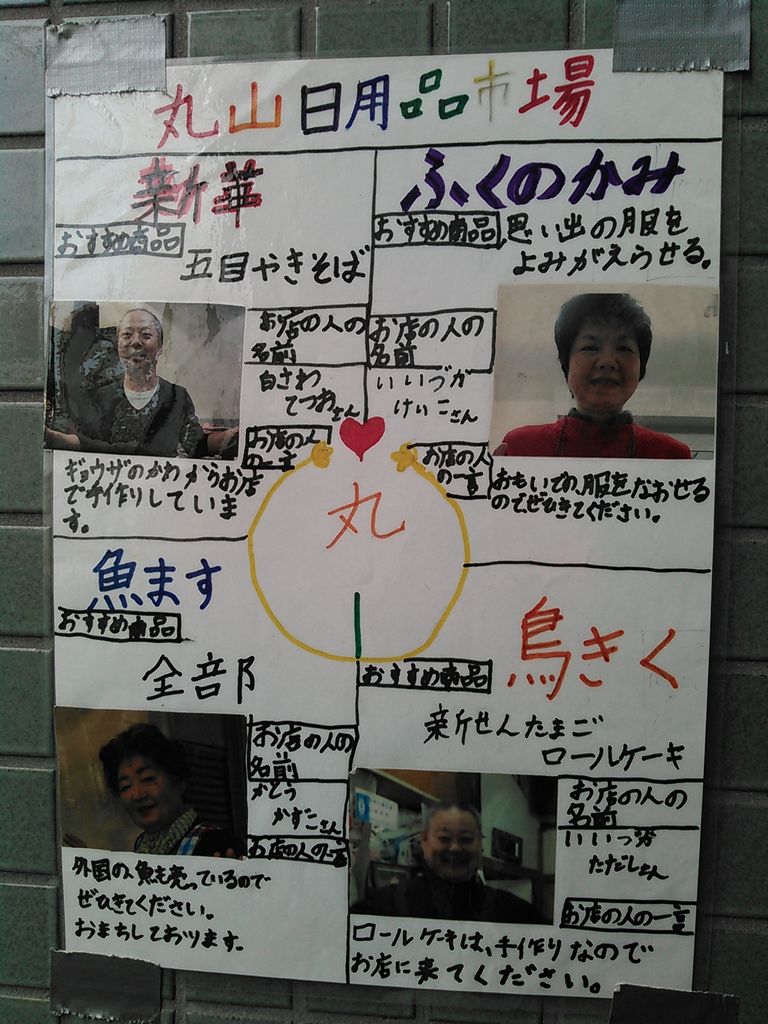 丸山日用品市場
新華
おすすめ商品
五目やきそば
お店の人の
名前
白さわ
てつおさん
お店の人
の一言
ギョウザのかわからお店
で手作りしていま
す。
ふくのかみ
おすすめ商品
思い出の服を
よみがえらせる。
お店の人の
名前
いいづか
けいこさん
お店の人
の一言
おもいでの服をなおせる
のでぜひきてください。
丸
魚ます
おすすめ商品
全部
お店の人の
名前
かとう
かずこさん
お店の人の一言
外国の、魚も売っているので
ぜひきてください。
おまちしております。
鳥きく
おすすめ商品
新せんたまご
ロールケーキ
お店の人の
名前
いいづか
ただしさん
お店の人の一言
ロールケーキは、手作りなので
お店に来てください。